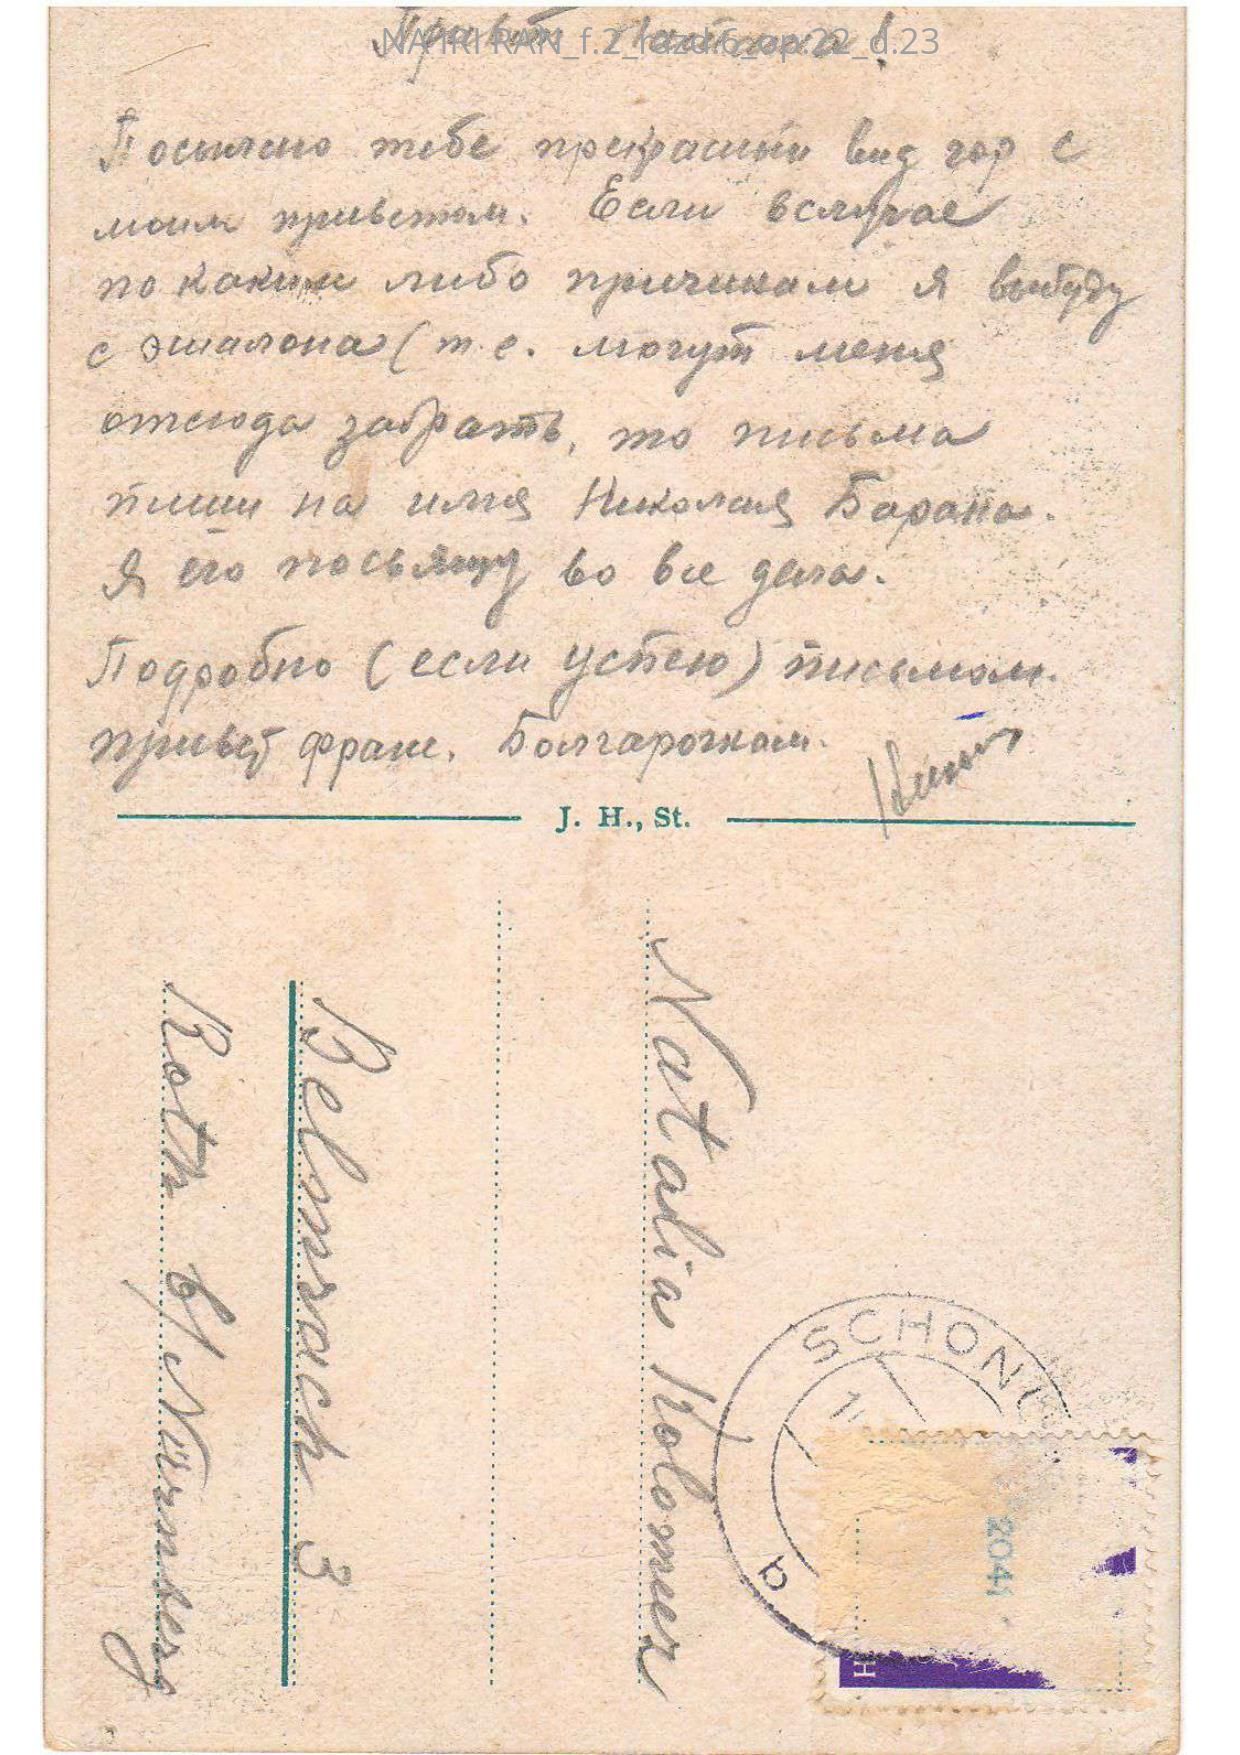 Привет Наташа!
NA IRI RAN_f.2_razd.6_op.22_d.23
Посылаю тебе прекрасный вид гор с
моим приветом. Если вслучае
по каким либо причинам я выбуду
с эшалона (т.е. могут меня
отсюда забрать, то письма
пиши на имя Николая Барана.
Я его посьвящу во все дела.
Подробно (если успею) письмом.
привет франс. Болгарочкам.
J. H., St.
Natalia Kolomer
Belmrach 3
Roth b/ Nürnberg
SCHÖN
b
2041